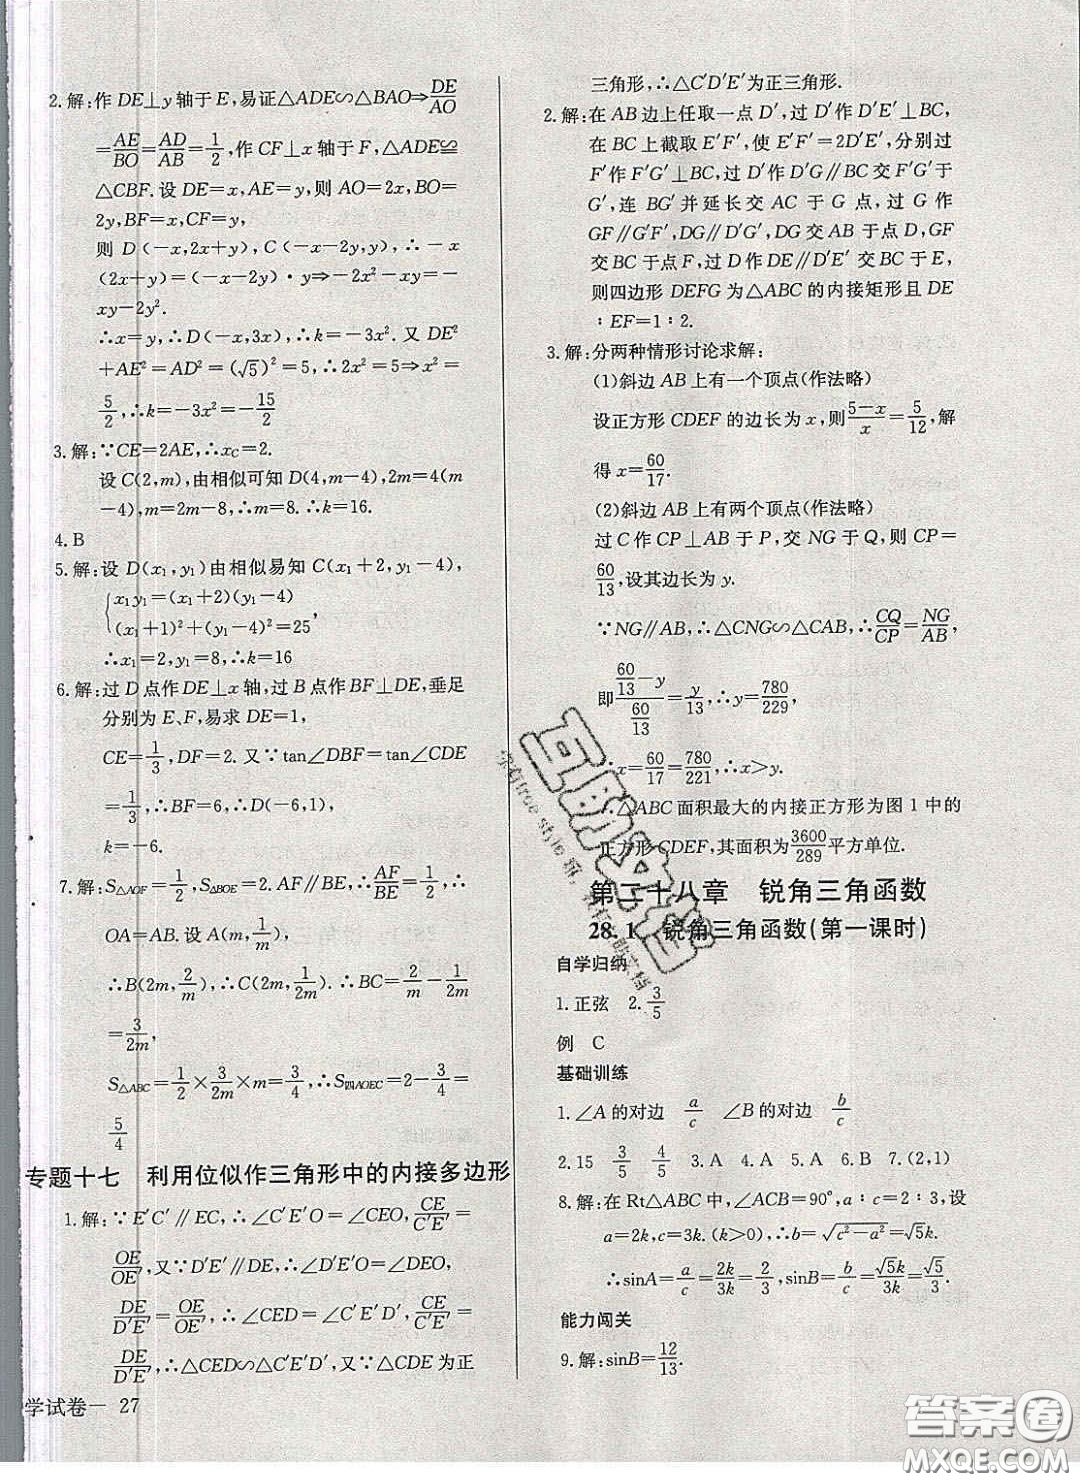 2.解:作DE⊥y轴于E,易证△ADE∽△BAO⇒DE/AO
=AE/BO=AD/AB=1/2,作CF⊥x轴于F,△ADE≌
△CBF.设DE=x,AE=y,则AO=2x,BO=
2y,BF=x,CF=y,
则D(-x,2x+y),C(-x-2y,y),∴-x
(2x+y)=(-x-2y)·y⇒-2x²-xy=-
xy-2y².
∴x=y,∴D(-x,3x),∴k=-3x².又DE²
+AE²=AD²=(√5)²=5⇒2x²=5⇒x²=
5/2,∴k=-3x²=-15/2
3.解:∵CE=2AE,∴x_C=2.
设C(2,m),由相似可知D(4,m-4),2m=4(m
-4),m=2m-8,∴m=8.∴k=16.
4.B
5.解:设D(x₁,y₁)由相似易知C(x₁+2,y₁-4),
{x₁y₁=(x₁+2)(y₁-4)
(x₁+1)²+(y₁-4)²=25,
∴x₁=2,y₁=8,∴k=16
6.解:过D点作DE⊥x轴,过B点作BF⊥DE,垂足
分别为E、F,易求DE=1,
CE=1/3,DF=2.又∵tan∠DBF=tan∠CDE
=1/3,∴BF=6,∴D(-6,1),
k=-6.
7.解:S△AOF=1/2,S△BOE=2.AF∥BE,∴AF/BE=1/2,∴
OA=AB.设A(1/m,m),
∴B(2/m,2m),∴C(1/2m,2m).∴BC=2/m-1/2m
=3/2m,
S△ABC=1/2×3/2m×m=3/4,∴S四AOEC=2-3/4=
5/4
专题十七 利用位似作三角形中的内接多边形
1.解:∵E′C′∥EC,∴∠C′E′O=∠CEO,CE/C′E′=
OE/OE′,又∵D′E′∥DE,∴∠D′E′O=∠DEO,
DE/D′E′=OE/OE′,∴∠CED=∠C′E′D′,CE/C′E′=
DE/D′E′,∴△CED∽△C′E′D′,又∵△CDE为正
学试卷— 27
三角形,∴△C′D′E′为正三角形.
2.解:在AB边上任取一点D′,过D′作D′E′⊥BC,
在BC上截取E′F′,使E′F′=2D′E′,分别过
F′作F′G′⊥BC,过D′作D′G′∥BC交F′G′于
G′,连BG′并延长交AC于G点,过G作
GF∥G′F′,DG∥D′G′,DG交AB于点D,GF
交BC于点F,过D作DE∥D′E′交BC于E,
则四边形DEFG为△ABC的内接矩形且DE
∶EF=1∶2.
3.解:分两种情形讨论求解:
(1)斜边AB上有一个顶点(作法略)
设正方形CDEF的边长为x,则5-x/x=5/12,解
得x=60/17.
(2)斜边AB上有两个顶点(作法略)
过C作CP⊥AB于P,交NG于Q,则CP=
60/13,设其边长为y.
∵NG∥AB,∴△CNG∽△CAB,∴CQ/CP=NG/AB,
即(60/13-y)/(60/13)=y/13,∴y=780/229,
∴x=60/17=780/221,∴x>y.
∴△ABC面积最大的内接正方形为图1中的
正方形CDEF,其面积为3600/289平方单位.
第二十八章 锐角三角函数
28.1 锐角三角函数(第一课时)
自学归纳
1.正弦 2.3/5
例 C
基础训练
1.∠A的对边 a/c ∠B的对边 b/c
2.15 3/5 4/5 3.A 4.A 5.A 6.B 7.(2,1)
8.解:在Rt△ABC中,∠ACB=90°,a∶c=2∶3,设
a=2k,c=3k.(k>0),∴b=√(c²-a²)=√5k.
∴sinA=a/c=2k/3k=2/3,sinB=b/c=√5k/3k=√5/3.
能力闯关
9.解:sinB=12/13.
答案圈
MXQE.COM